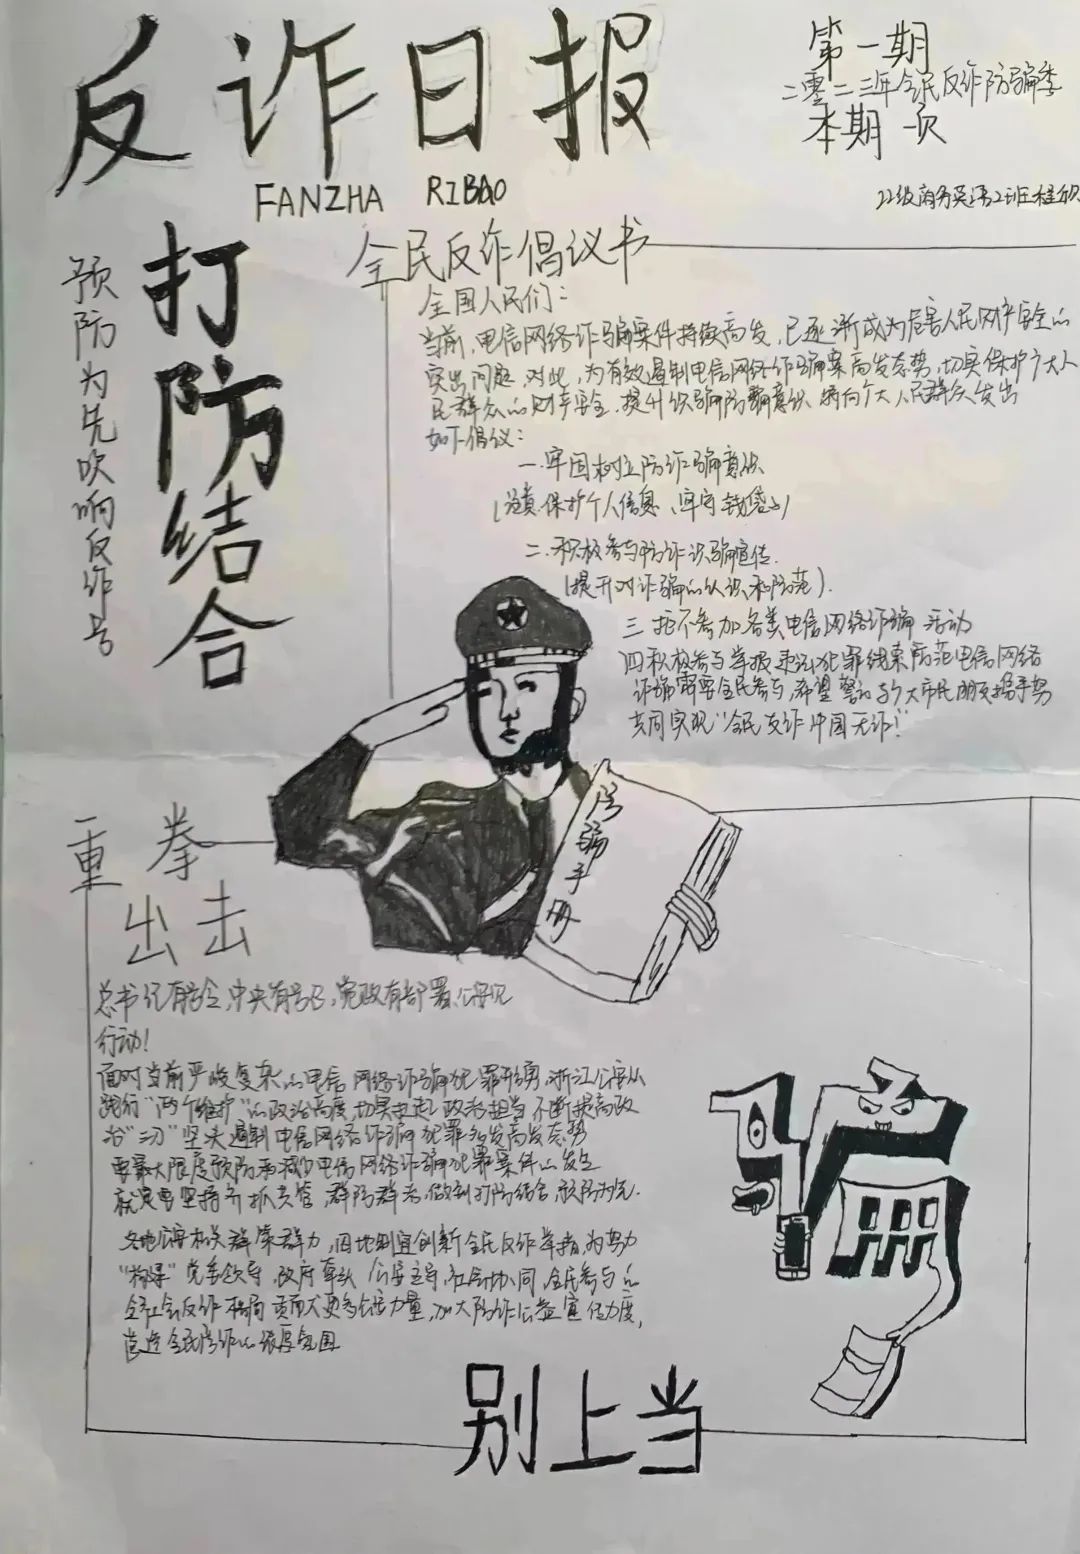 反诈日报
FANZHA RIBAO
第一期
二零二三年全民反诈防骗季
本期一页
22级商务英语2班程欣
打防结合
预防为先吹响反诈号
全民反诈倡议书
全国人民们：
当前，电信网络诈骗案件持续高发，已逐渐成为危害人民财产安全的
突出问题，对此，为有效遏制电信网络诈骗案高发态势，切实保护广大人
民群众的财产安全，提升识骗防骗意识 特向广大人民群众发出
如下倡议：
一.牢固树立防诈骗意识
保护个人信息、牢守钱袋子）
二.积极参与防诈识骗宣传.
（提升对诈骗的认识和防范）.
三 拒不参加各类电信网络诈骗活动
四积极参与举报 犯罪线索防范电信网络
诈骗需要全民参与，希望警 与广大市民朋友携手努
共同实现“全民反诈中国无诈！”
防骗手册
重拳
出击
总书记有号令，中央有号召，党政有部署，公安见
行动！
面对当前严峻复杂的电信网络诈骗犯罪形势，浙江公安从
践行“两个维护”的政治高度，切实扛起政治担当不断提高政
治“三力”坚决遏制电信网络诈骗犯罪多发高发态势
要最大限度预防和减少电信网络诈骗犯罪案件的发生
就是要坚持齐抓共管，群防群治，做到打防结合，预防为先.
各地公安机关群策群力，因地制宜创新全民反诈举措，为努力
“构建”党委领导、政府牵头、公安主导，社会协同，全民参与的
全社会反诈格局 贡献更多公安力量，加大防诈公益宣传力度，
营造全民防诈的浓厚氛围
别上当